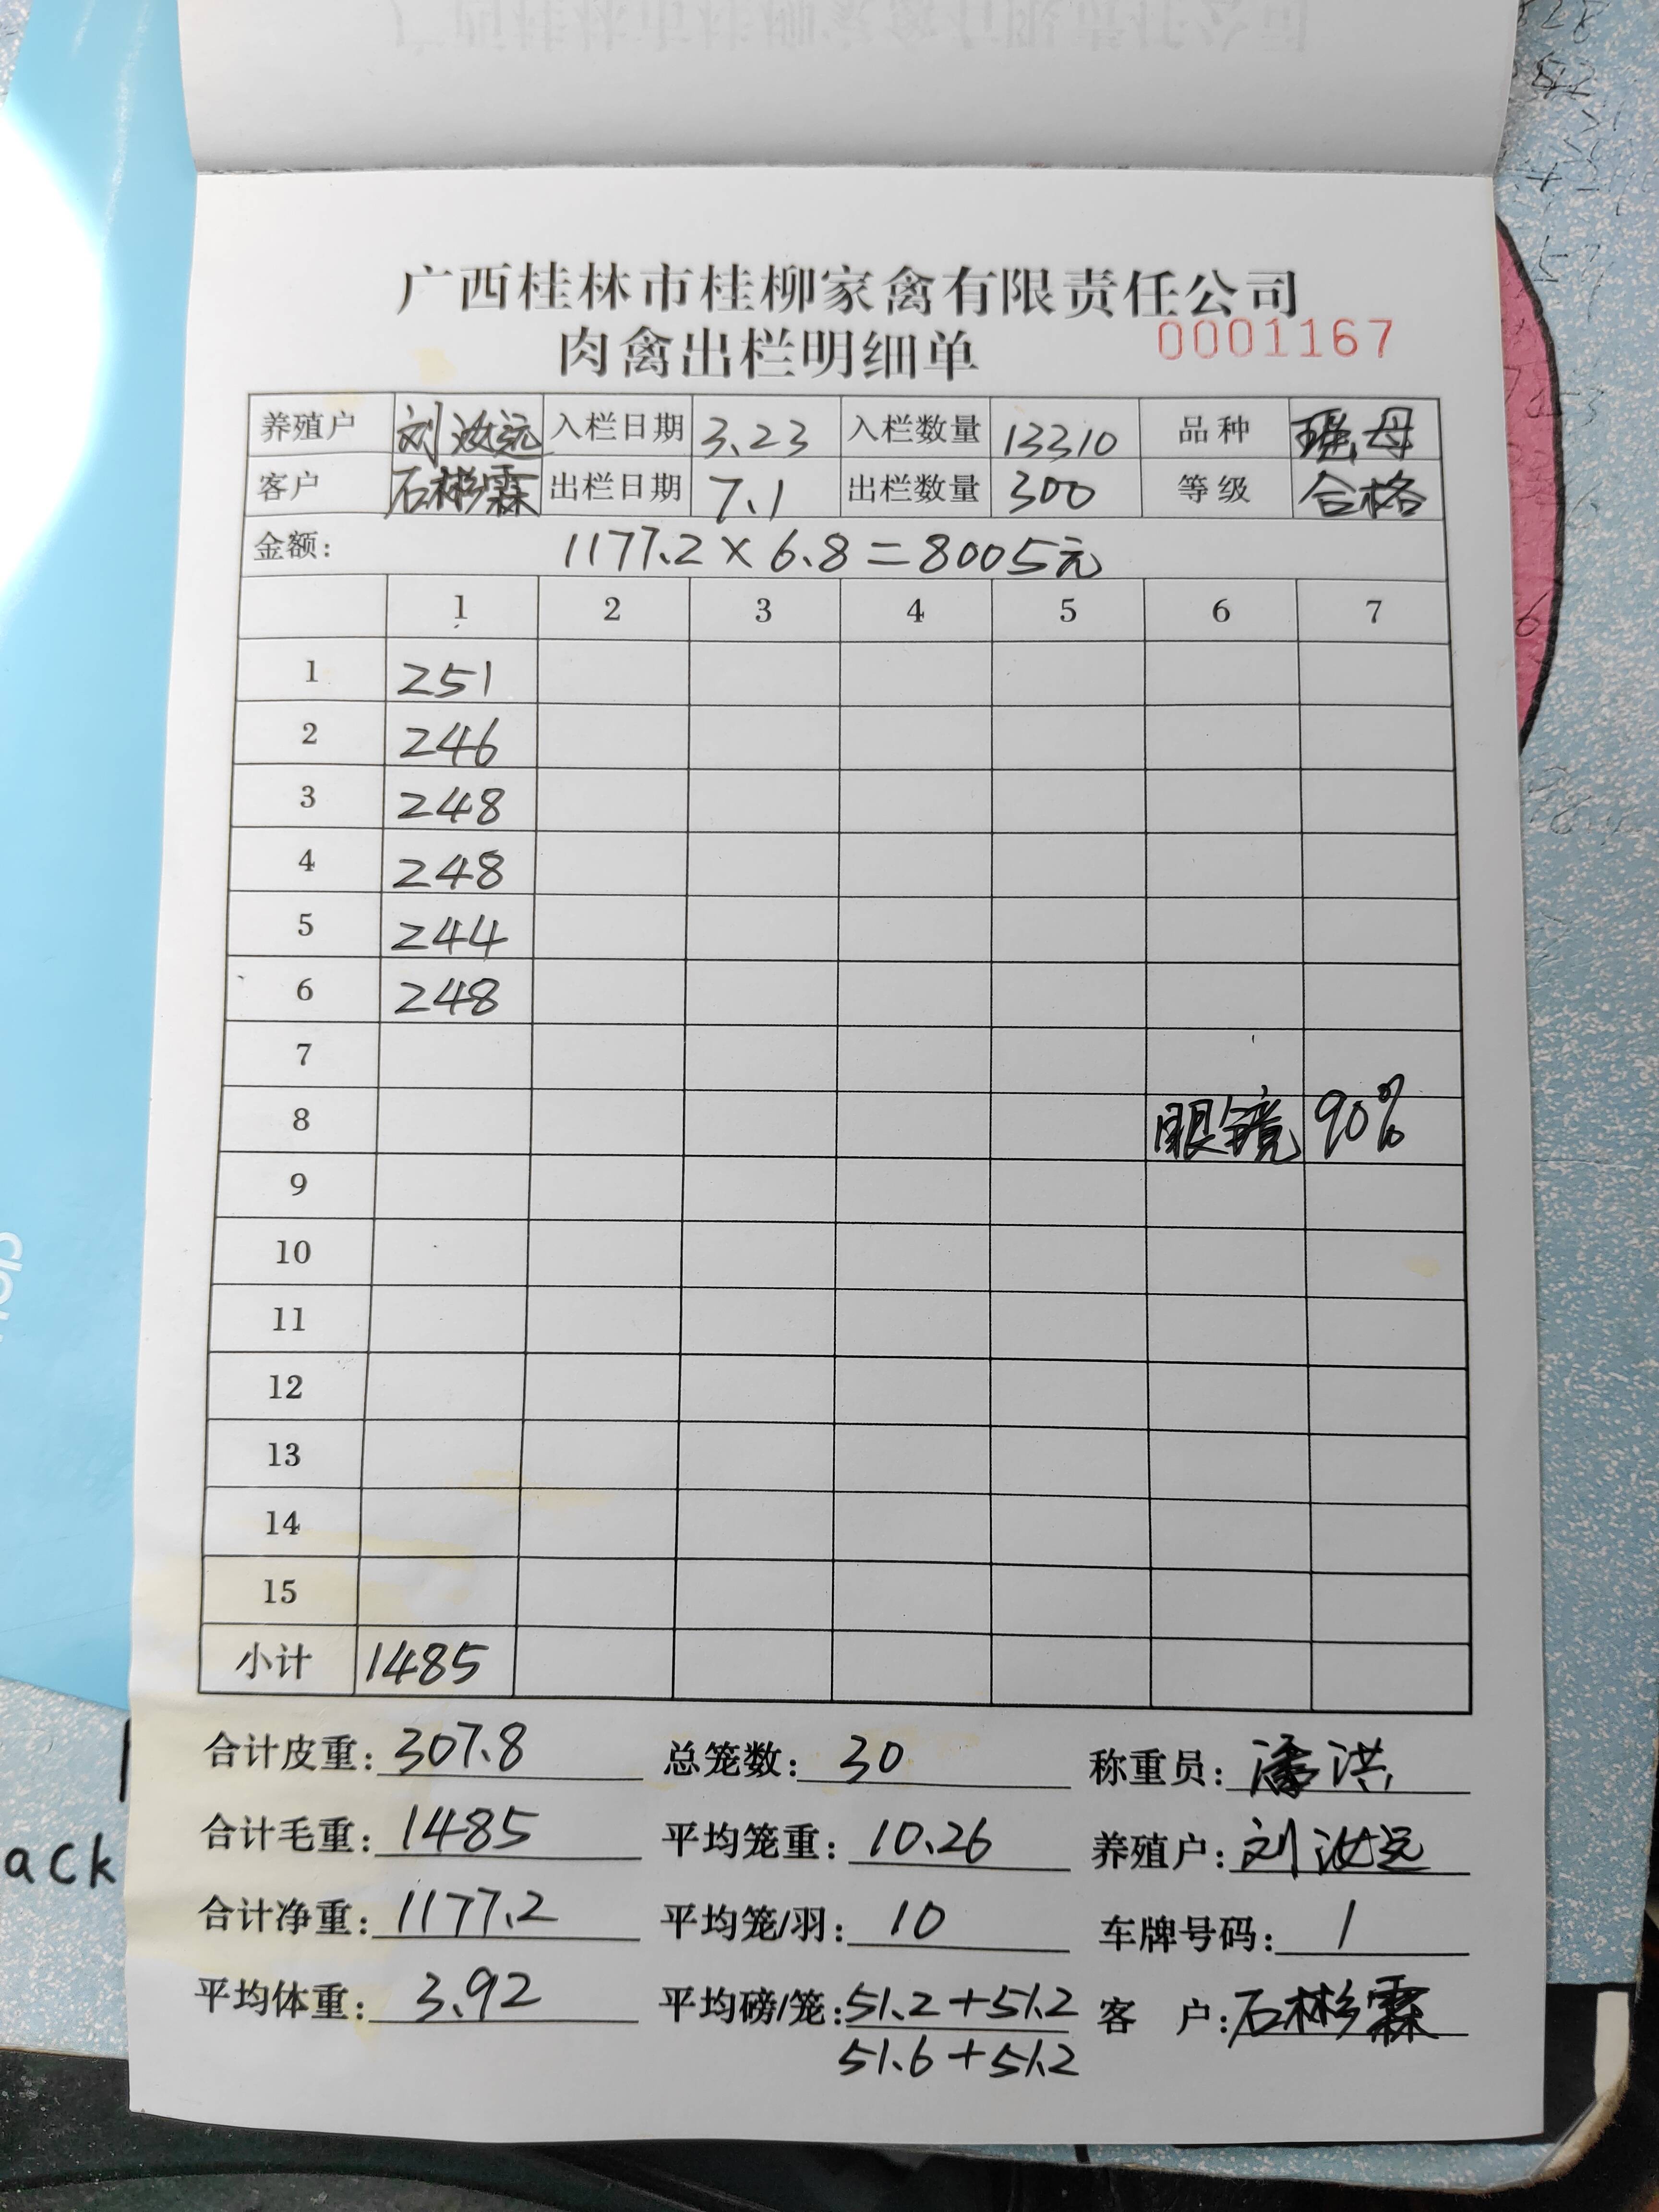 广西桂林市桂柳家禽有限责任公司
肉禽出栏明细单 0001167
养殖户 刘汝远 入栏日期 3.23 入栏数量 13310 品种 瑶母
客户 石彬霖 出栏日期 7.1 出栏数量 300 等级 合格
金额: 1177.2×6.8=8005元
1 2 3 4 5 6 7
1 251
2 246
3 248
4 248
5 244
6 248
7
8 眼镜 90%
9
10
11
12
13
14
15
小计 1485
合计皮重: 307.8 总笼数: 30 称重员: 潘洪
合计毛重: 1485 平均笼重: 10.26 养殖户: 刘汝远
合计净重: 1177.2 平均笼/羽: 10 车牌号码: 1
平均体重: 3.92 平均磅/笼: 51.2+51.2 客 户: 石彬霖
51.6+51.2
ack